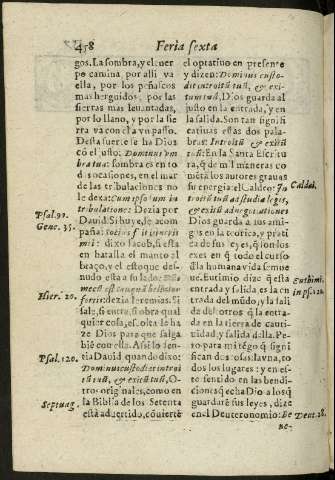 458
Feria sexta
gos. La sombra, y el cuer
po camina, por alli va
ella, por los peñascos
mas herguidos, por las
sierras mas leuantadas,
por lo llano, y por la sier
ra va con el a vn passo.
Desta suerte se ha Dios
cõ el justo: Dominus vm
bra tua: sombra es en to
das ocasiones, en el mar
de las tribulaciones no
le dexa: Cum ipso sum in
tribulatione: Dezia por
Dauid. Si huye, le acom
paña:
mi: dixo Iacob, si esta
en batalla el manto al
braço, y el estoque des-
nudo esta a su lado:
fortis: dezia Ieremias. Si
sale, si entra, si obra qual
quier cosa, es
ze Dios para que salga
biẽ con ella. Assi lo sen-
tia Dauid quando dixo:
Dominus custodiet introi
tũ tuũ, & exitũ tuũ, O-
tros originales, como en
la Biblia de los Setenta
està aduertido, cõuierte
Psal. 91.
Gene. 35.
Hier. 20.
Psal. 120.
Septuag.
el optatiuo en presente
y dizen: Dominus custo-
dit introitũ tuũ, & exi-
tum tuũ, Dios guarda al
justo en la entrada, y en
la salida. Son tan signifi
catiuas estas dos pala-
bras: Introitũ & exitũ
tuũ: En la Santa Escritu
ra, q̃ de mil maneras co
mẽtã los autores graues
su energia: el Caldeo: In
troitũ tuũ ad studia legis,
&
Guarda Dios a sus ami-
gos en la teorica, y prati
ca de sus leyes, q̃ son los
exes en q̃ todo el curso
d̃la humana vida se mue
ue. Eutimio dize q̃ esta
entrada y salida es la en
trada del mũdo, y la sali
da del: otros q̃ la entra-
da en la tierra de cauti-
uidad, y salida della. Pe-
ro para mi tẽgo q̃ signi
fican dos cosas: la vna, to
dos los lugares: y en es-
te sentido en las bendi-
ciones q̃ echa Dio a los q̃
guardarẽ sus leyes, dize
en el Deuteronomio: Be
ne-
Caldei.
Euthimi.
in ps. 120.
Deut. 28.